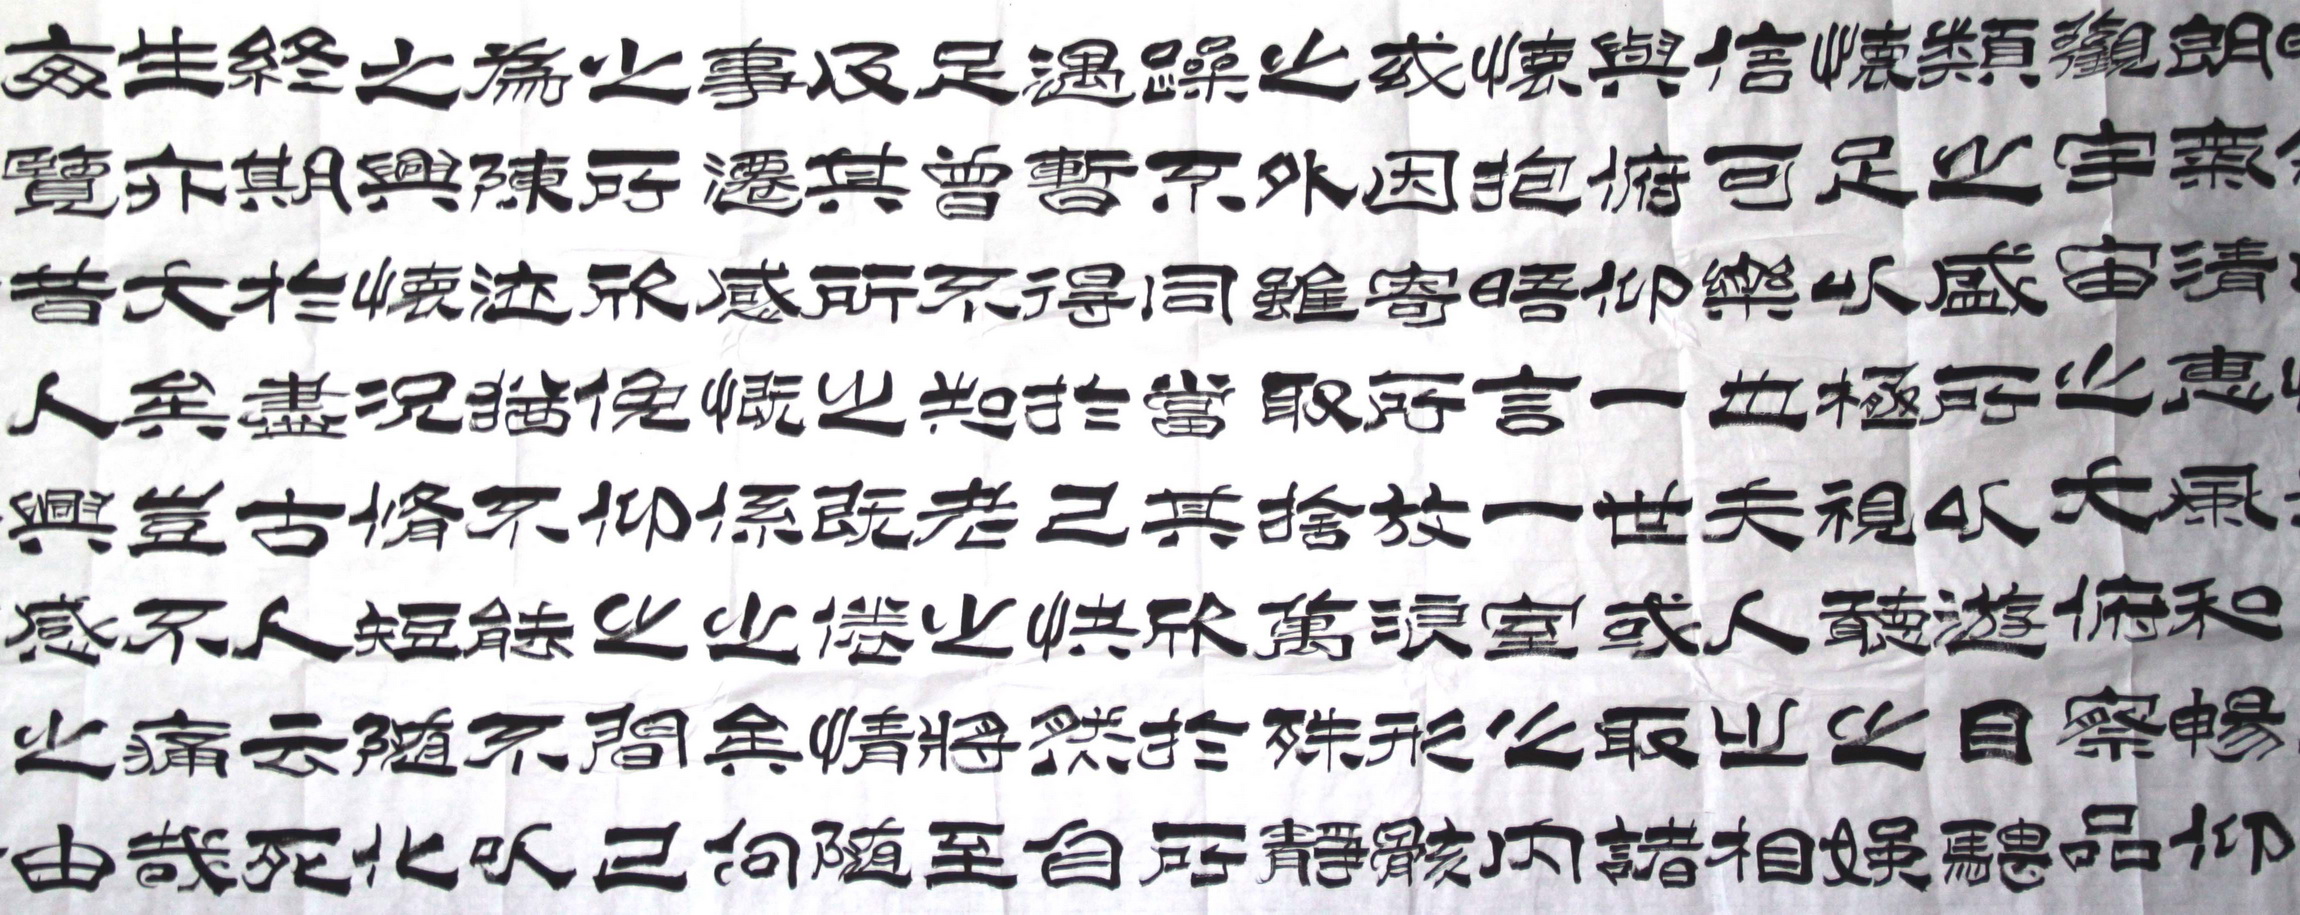 朗氣清惠風和暢仰
觀宇宙之大俯察品
類之盛所以遊目騁
懷足以極視聽之娛
信可樂也夫人之相
與俯仰一世或取諸
懷抱晤言一室之內
或因寄所放浪形骸
之外雖取捨萬殊靜
躁不同當其欣於所
遇暫得於己快然自
足曾不知老之將至
及其所之既倦情隨
事遷感慨係之矣向
之所欣俛仰之間已
為陳迹猶不能不以
之興懷況脩短隨化
終期於盡古人云死
生亦大矣豈不痛哉
每覽昔人興感之由